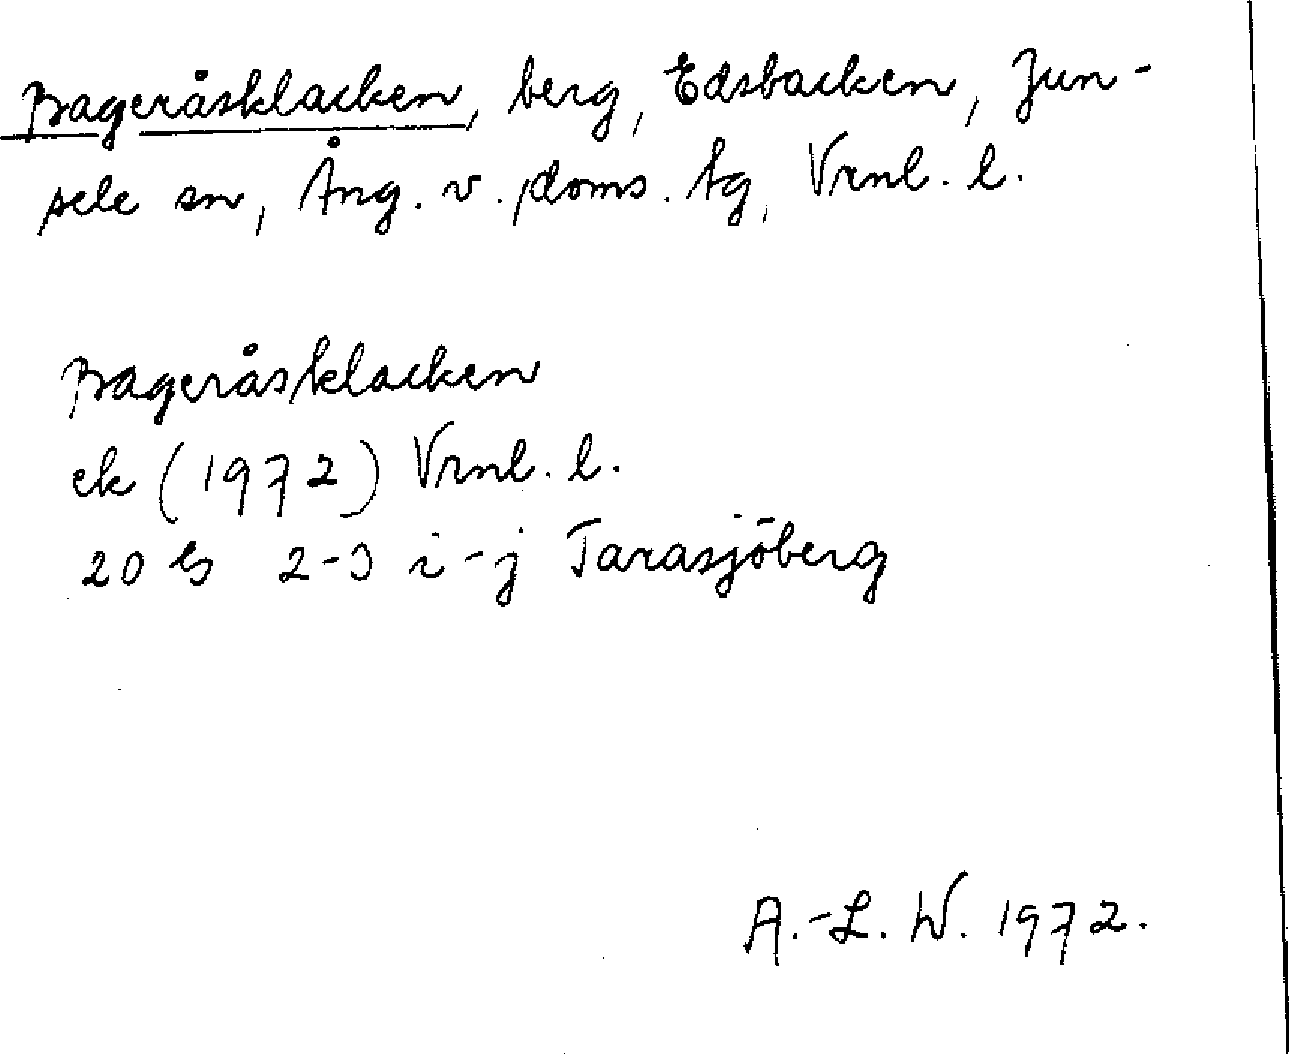 Bageråsklacken, berg, Edsbacken, Jun-
sele sn, Ång. v. doms. tg, Vrnl. l.
Bageråsklacken
ek (1972) Vrnl. l.
20 G 2-3 i-j Tarasjöberg
A.-L. W. 1972.